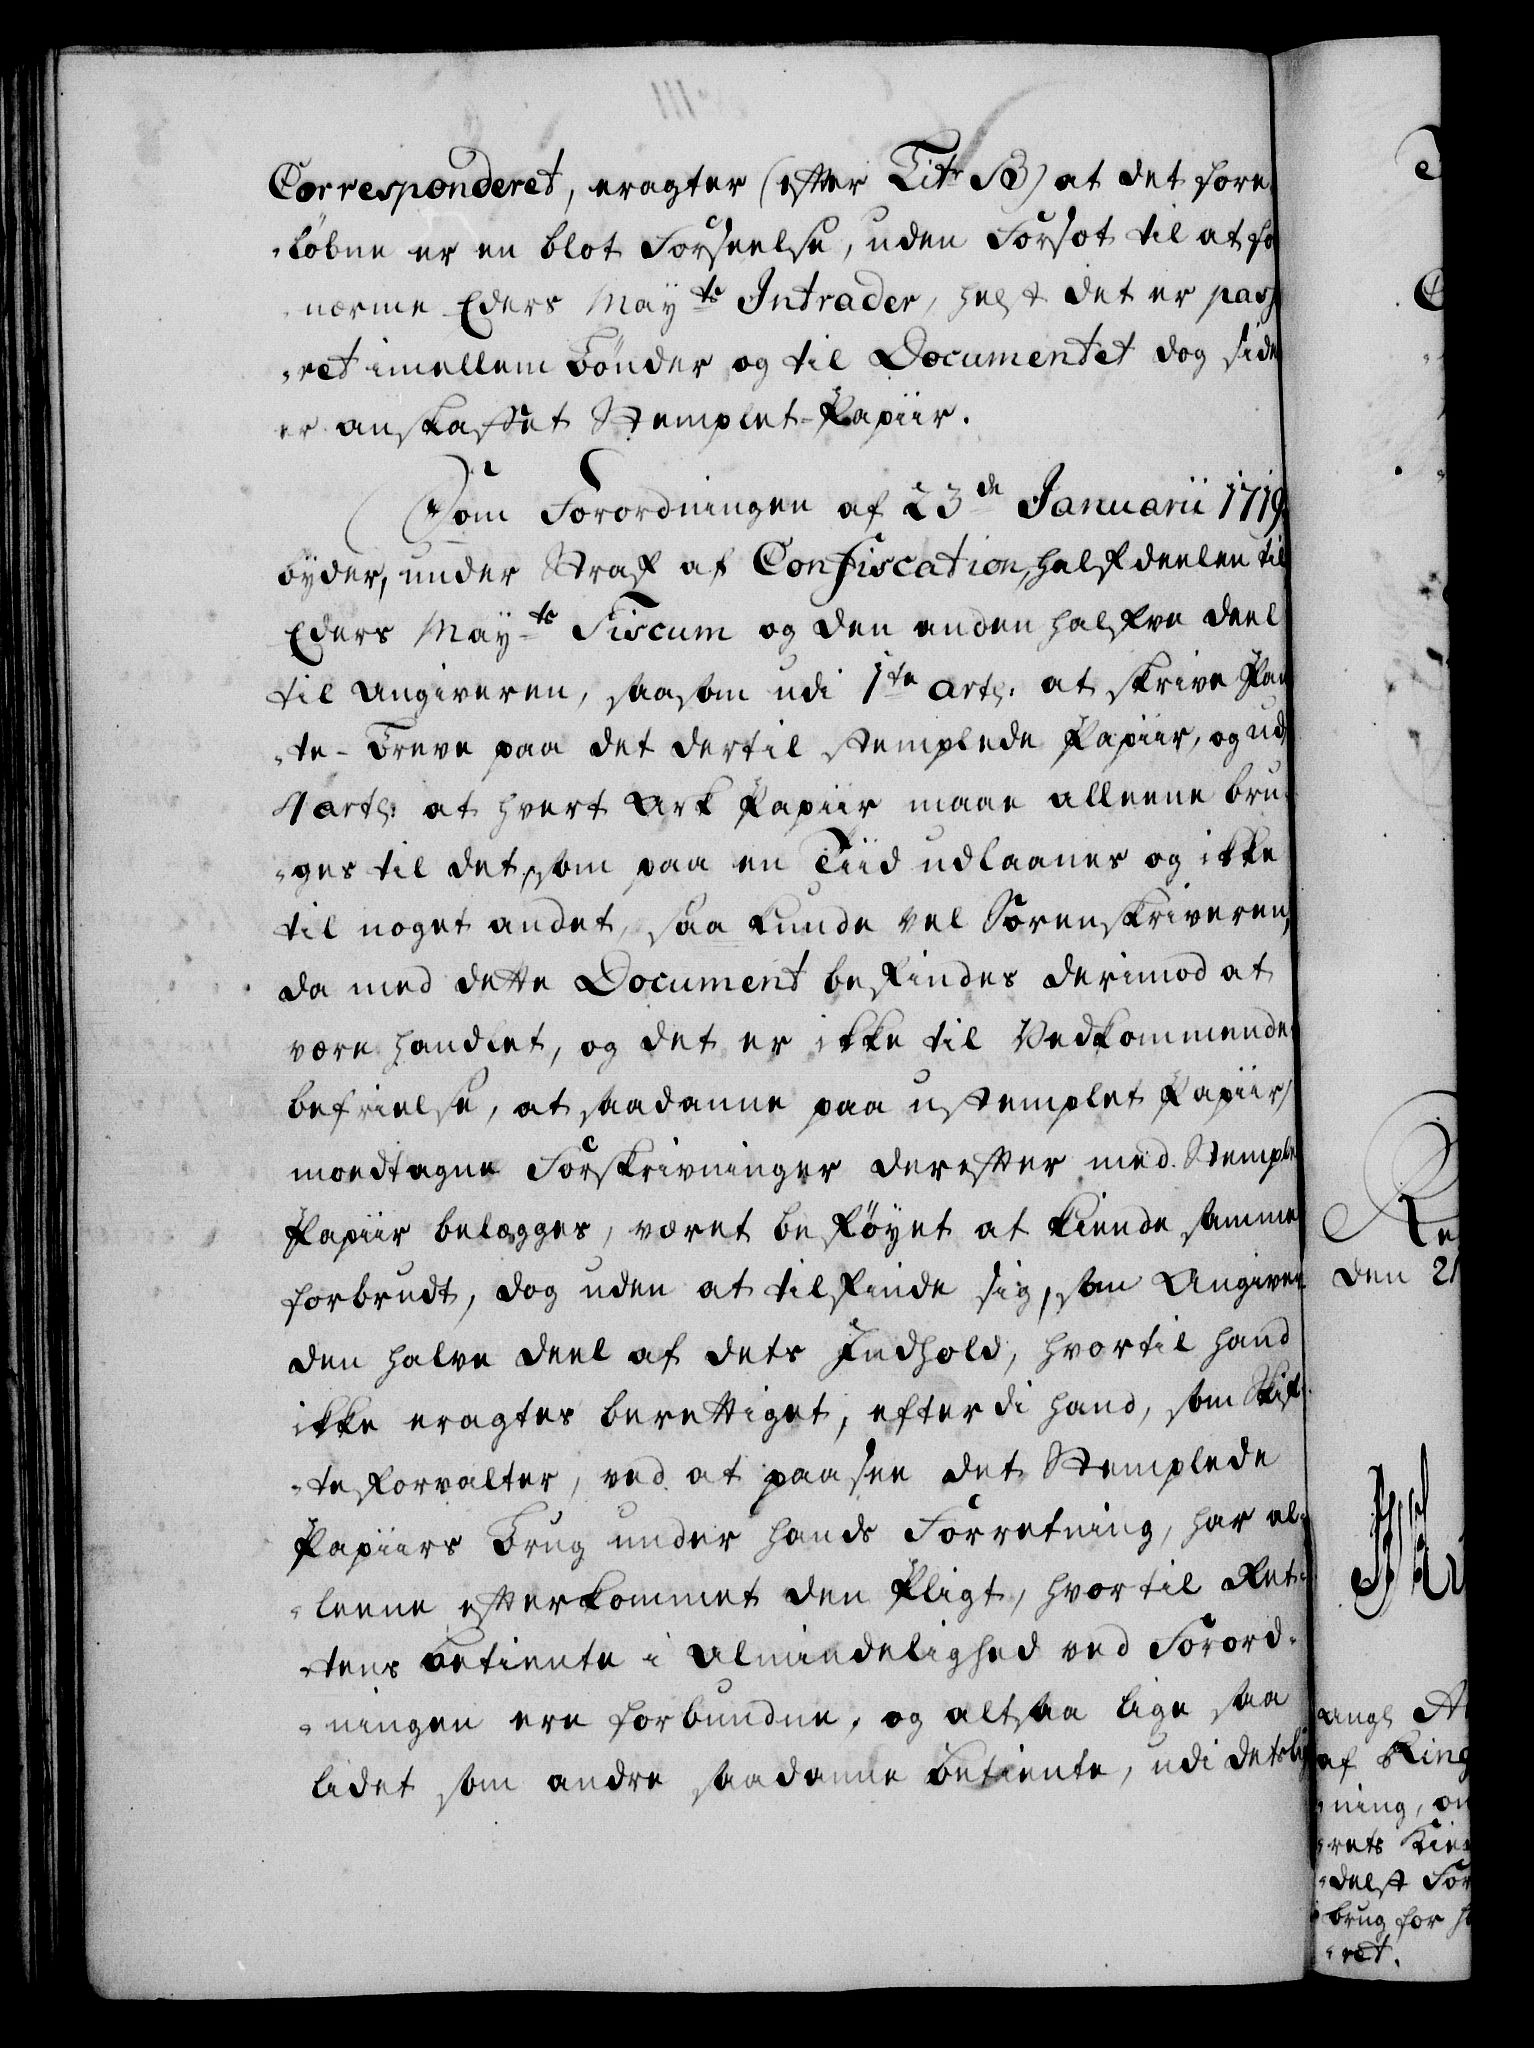 Corresponderet, eragter (efter Litr B) at det fore-
-løbne er en blot Forseelse, uden Forsæt til at for
nærme Eders Mayts Intrader, helst det er pass
-ret imellem Bønder og til Documentet dog siden
er anskaffet Stemplet-Papiir.
Som Forordningen af 23de Januarii 1719.
byder, under Straf af Confiscation, halfdeelen til
Eders Mayts Fiscum og den anden halfve deel
til Angiveren, saasom udi 1te artl: at skrive Pan
-te-Breve paa det dertil stemplede Papiir, og udi
4 artl: at hvert Ark Papiir maae alleene bru-
-ges til det, som paa en Tiid udlaanes og ikke
til noget andet, saa kunde vel Sorenskriveren,
da med dette Document befindes derimod at
være handlet, og det er ikke til Vedkommendes
befrielse, at saadanne paa ustemplet Papiir
modtagne Forskrivninger derefter med Stemplet
Papiir belægges, været beføyet at kiende samme
forbrudt, dog uden at tilfinde sig, som Angiver
den halve deel af dets Indhold, hvortil hand
ikke eragtes berettiget, efterdi hand, som Skif-
-teforvalter, ved at paasee det Stemplede
Papiirs Brug under hands Forretning, har al-
-leene efterkommet den Pligt, hvortil Ret-
-tens Betiente i Almindelighed ved Forord-
-ningen ere forbundne, og altsaa lige saa
lidet som andre saadanne Betiente, udi detslig
den 21
angl
af Ring
-ning, om
-rets Kien
-delst For
brug for
-ret.